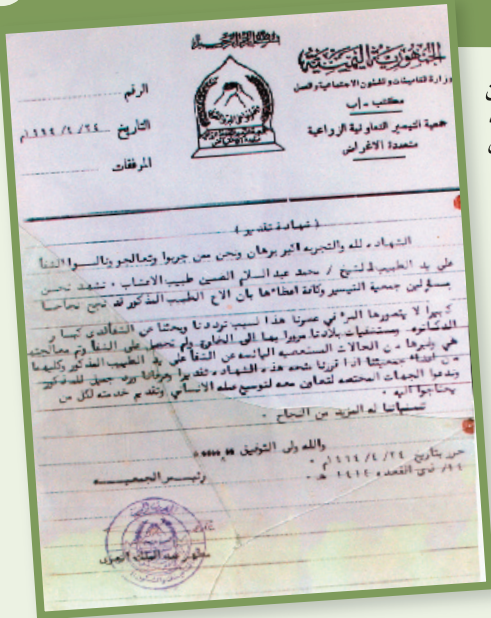 بسم الله الرحمن الرحيم
الجمهورية اليمنية
وزارة التامينات والشئون الاجتماعية والعمل
مكتب - إب
جمعية التيسير التعاونية الزراعية
متعددة الاغراض
الرقم
التاريخ ٢٤ / ٤ / ١٩٩٤م
المرفقات
( شهادة تقدير )
الشهاده لله والتجربه اكبر برهان ونحن ممن جربوا وتعالجو ونالوا الشفأ
على يد الطبيب الشيخ / محمد عبد السلام طبيب الاعشاب ، نشهد نحن
مسؤلين جمعية التيسير وكافة اعظاءها بان الاخ الطبيب المذكور قد نجح نجاحا
كبيرا لا يتصورها المرء في عصرنا هذا لسبب ترددنا وبحثنا عن الشفأ لدى كبار
الدكاتره ومستشفيات بلادنا مرورا بها الى الخارج ولم نحصل على الشفأ وتم معالجته
هي وغيرها من الحالات المستعصيه اليائسه عن الشفأ على يد الطبيب المذكور
من جمعيتنا لذا قررنا منحه هذه الشهاده تقديرا وعرفانا ورد جميل للمذكور
وندعوا الجهات المختصه لتعاون معه لتوسيع عمله الانساني وتقديم خدمته لكل من
يحتاجوا اليه .
تمنياتنا له المزيد من النجاح .
والله ولى التوفيق
حرر بتاريخ ٢٤ / ٤ /
ذي القعده ١٤١٤ هـ
رئيس الجمعيه